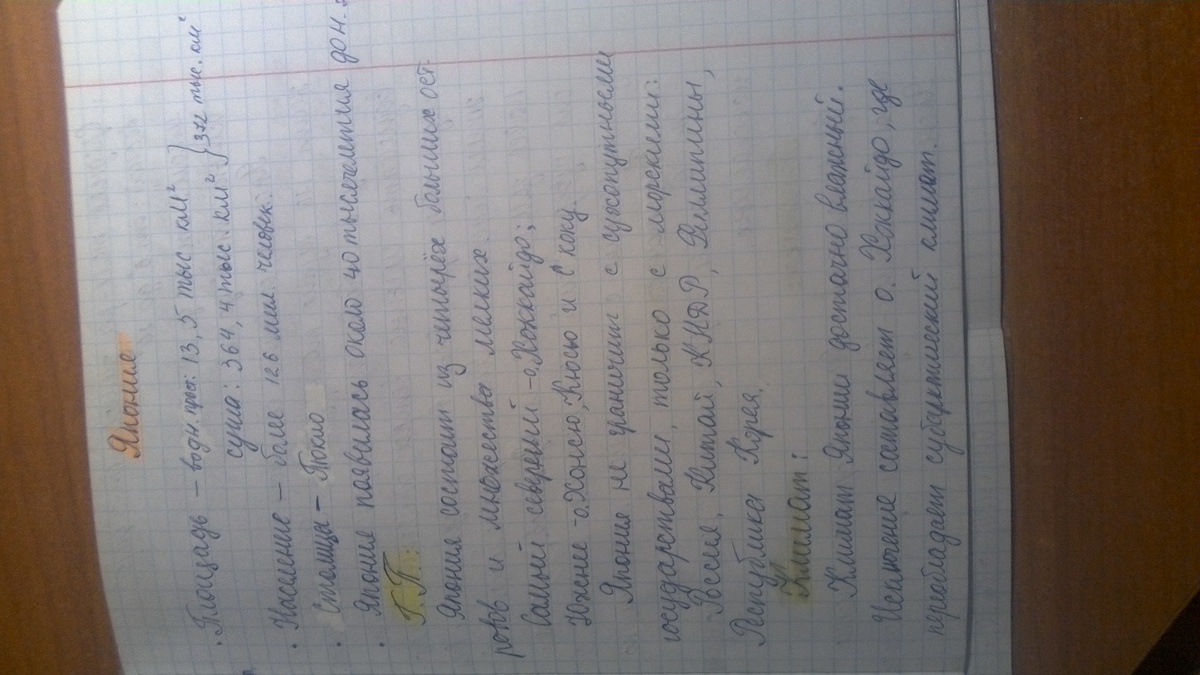 Япония
· Площадь – водн. прост: 13,5 тыс км²
суша: 364,4 тыс. км² } 372 тыс. км²
· Население – более 126 мил. человек.
· Столица – Токио
· Япония появилась около 40 тысячелетия до н.э
Г.П.:
Япония состоит из четырёх больших ост
ровов и множества мелких.
Самый северный – о.Хоккайдо;
Южнее – о.Хонсю, Кюсю и Сикоку.
Япония не граничит с сухопутными
государствами, только с морскими:
Россия, Китай, КНДР, Филиппины,
Республика Корея.
Климат:
Климат Японии достачно влажный.
Исключение саставляет о. Хоккайдо, где
перобладает субарктический климат.